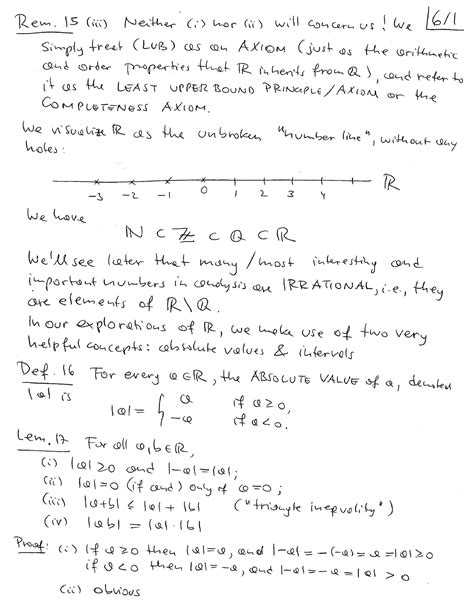 Rem. 15 (iii) Neither (i) nor (ii) will concern us! We 6/1
simply treat (LUB) as an AXIOM (just as the arithmetic
and order properties that ℝ inherits from ℚ), and refer to
it as the LEAST UPPER BOUND PRINCIPLE/AXIOM or the
COMPLETENESS AXIOM.
We visualize ℝ as the unbroken "number line", without any
holes:
-3 -2 -1 0 1 2 3 4 ℝ
We have
ℕ ⊂ ℤ ⊂ ℚ ⊂ ℝ
We'll see later that many/most interesting and
important numbers in analysis are IRRATIONAL, i.e., they
are elements of ℝ\ℚ.
In our explorations of ℝ, we make use of two very
helpful concepts: absolute values & intervals
Def. 16 For every a∈ℝ, the ABSOLUTE VALUE of a, denoted
|a| is
|a| = { a if a≥0,
-a if a<0.
Lem. 17 For all a,b∈ℝ,
(i) |a|≥0 and |-a|=|a|;
(ii) |a|=0 (if and) only if a=0;
(iii) |a+b| ≤ |a| + |b| ("triangle inequality")
(iv) |ab| = |a|·|b|
Proof: (i) If a≥0 then |a|=a, and |-a| = -(-a) = a = |a| ≥0
if a<0 then |a|=-a, and |-a| = -a = |a| > 0
(ii) obvious